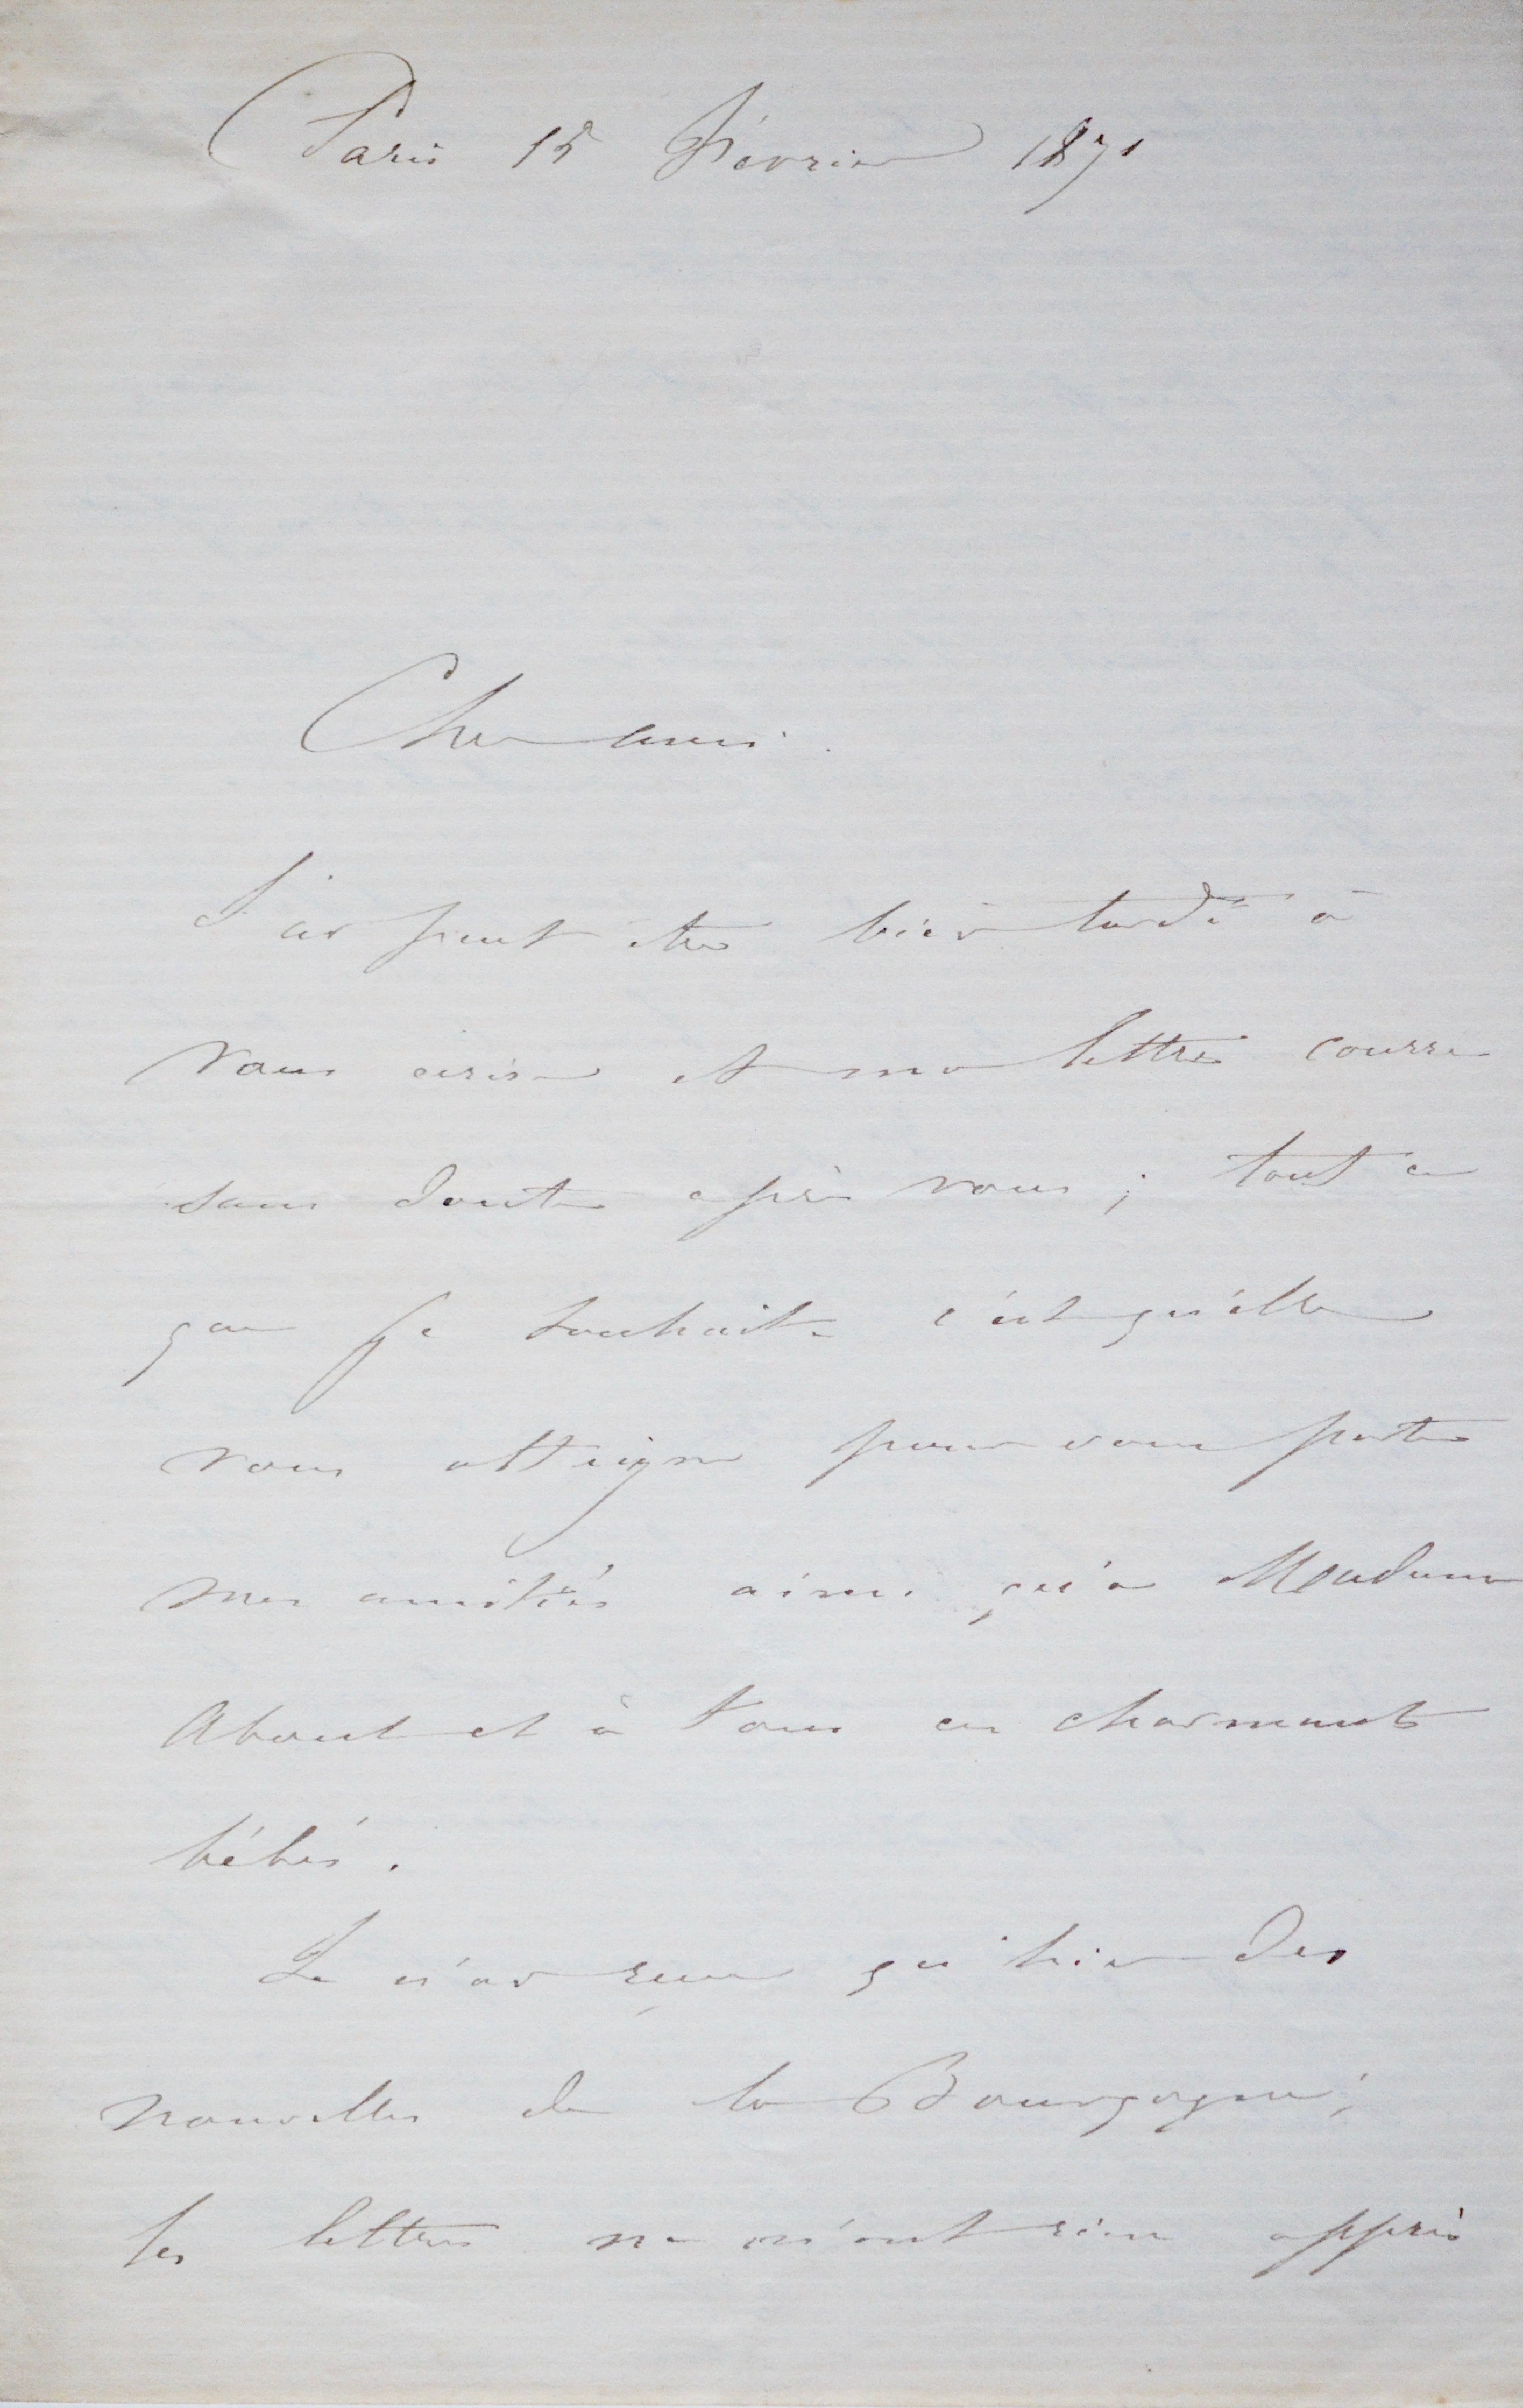 Paris 15 Février 1871
Cher ami.
J'ai peut être bien tardé à
vous écrire et ma lettre courra
sans doute après vous ; tout ce
que je souhaite c'est qu'elle
vous atteigne pour vous porter
mes amitiés ainsi qu'à Madame
About et à tous ces charmants
bébés.
Je n'ai reçu qu'hier des
nouvelles de la Bourgogne ;
les lettres ne m'ont rien appris